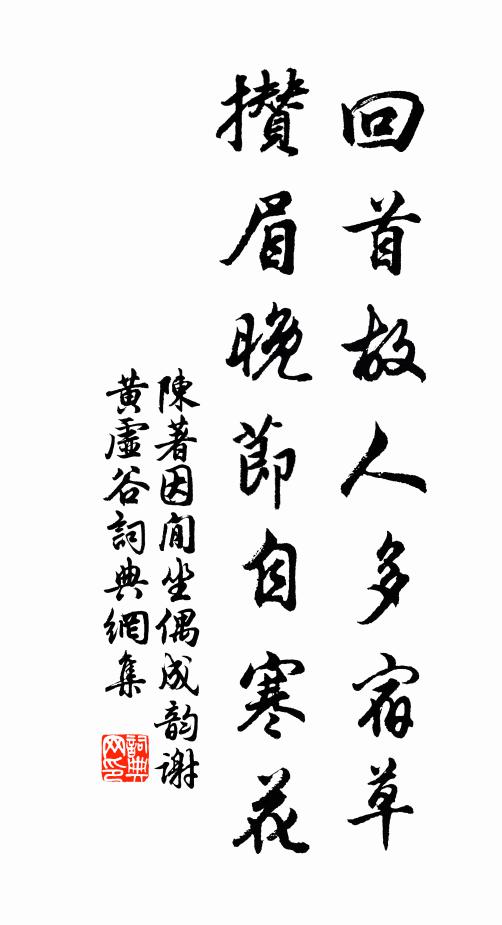 回首故人多宿草
攢眉晚節自寒花
陳著因閒坐偶成韵謝
黃虛谷詞典網集
詞典网印